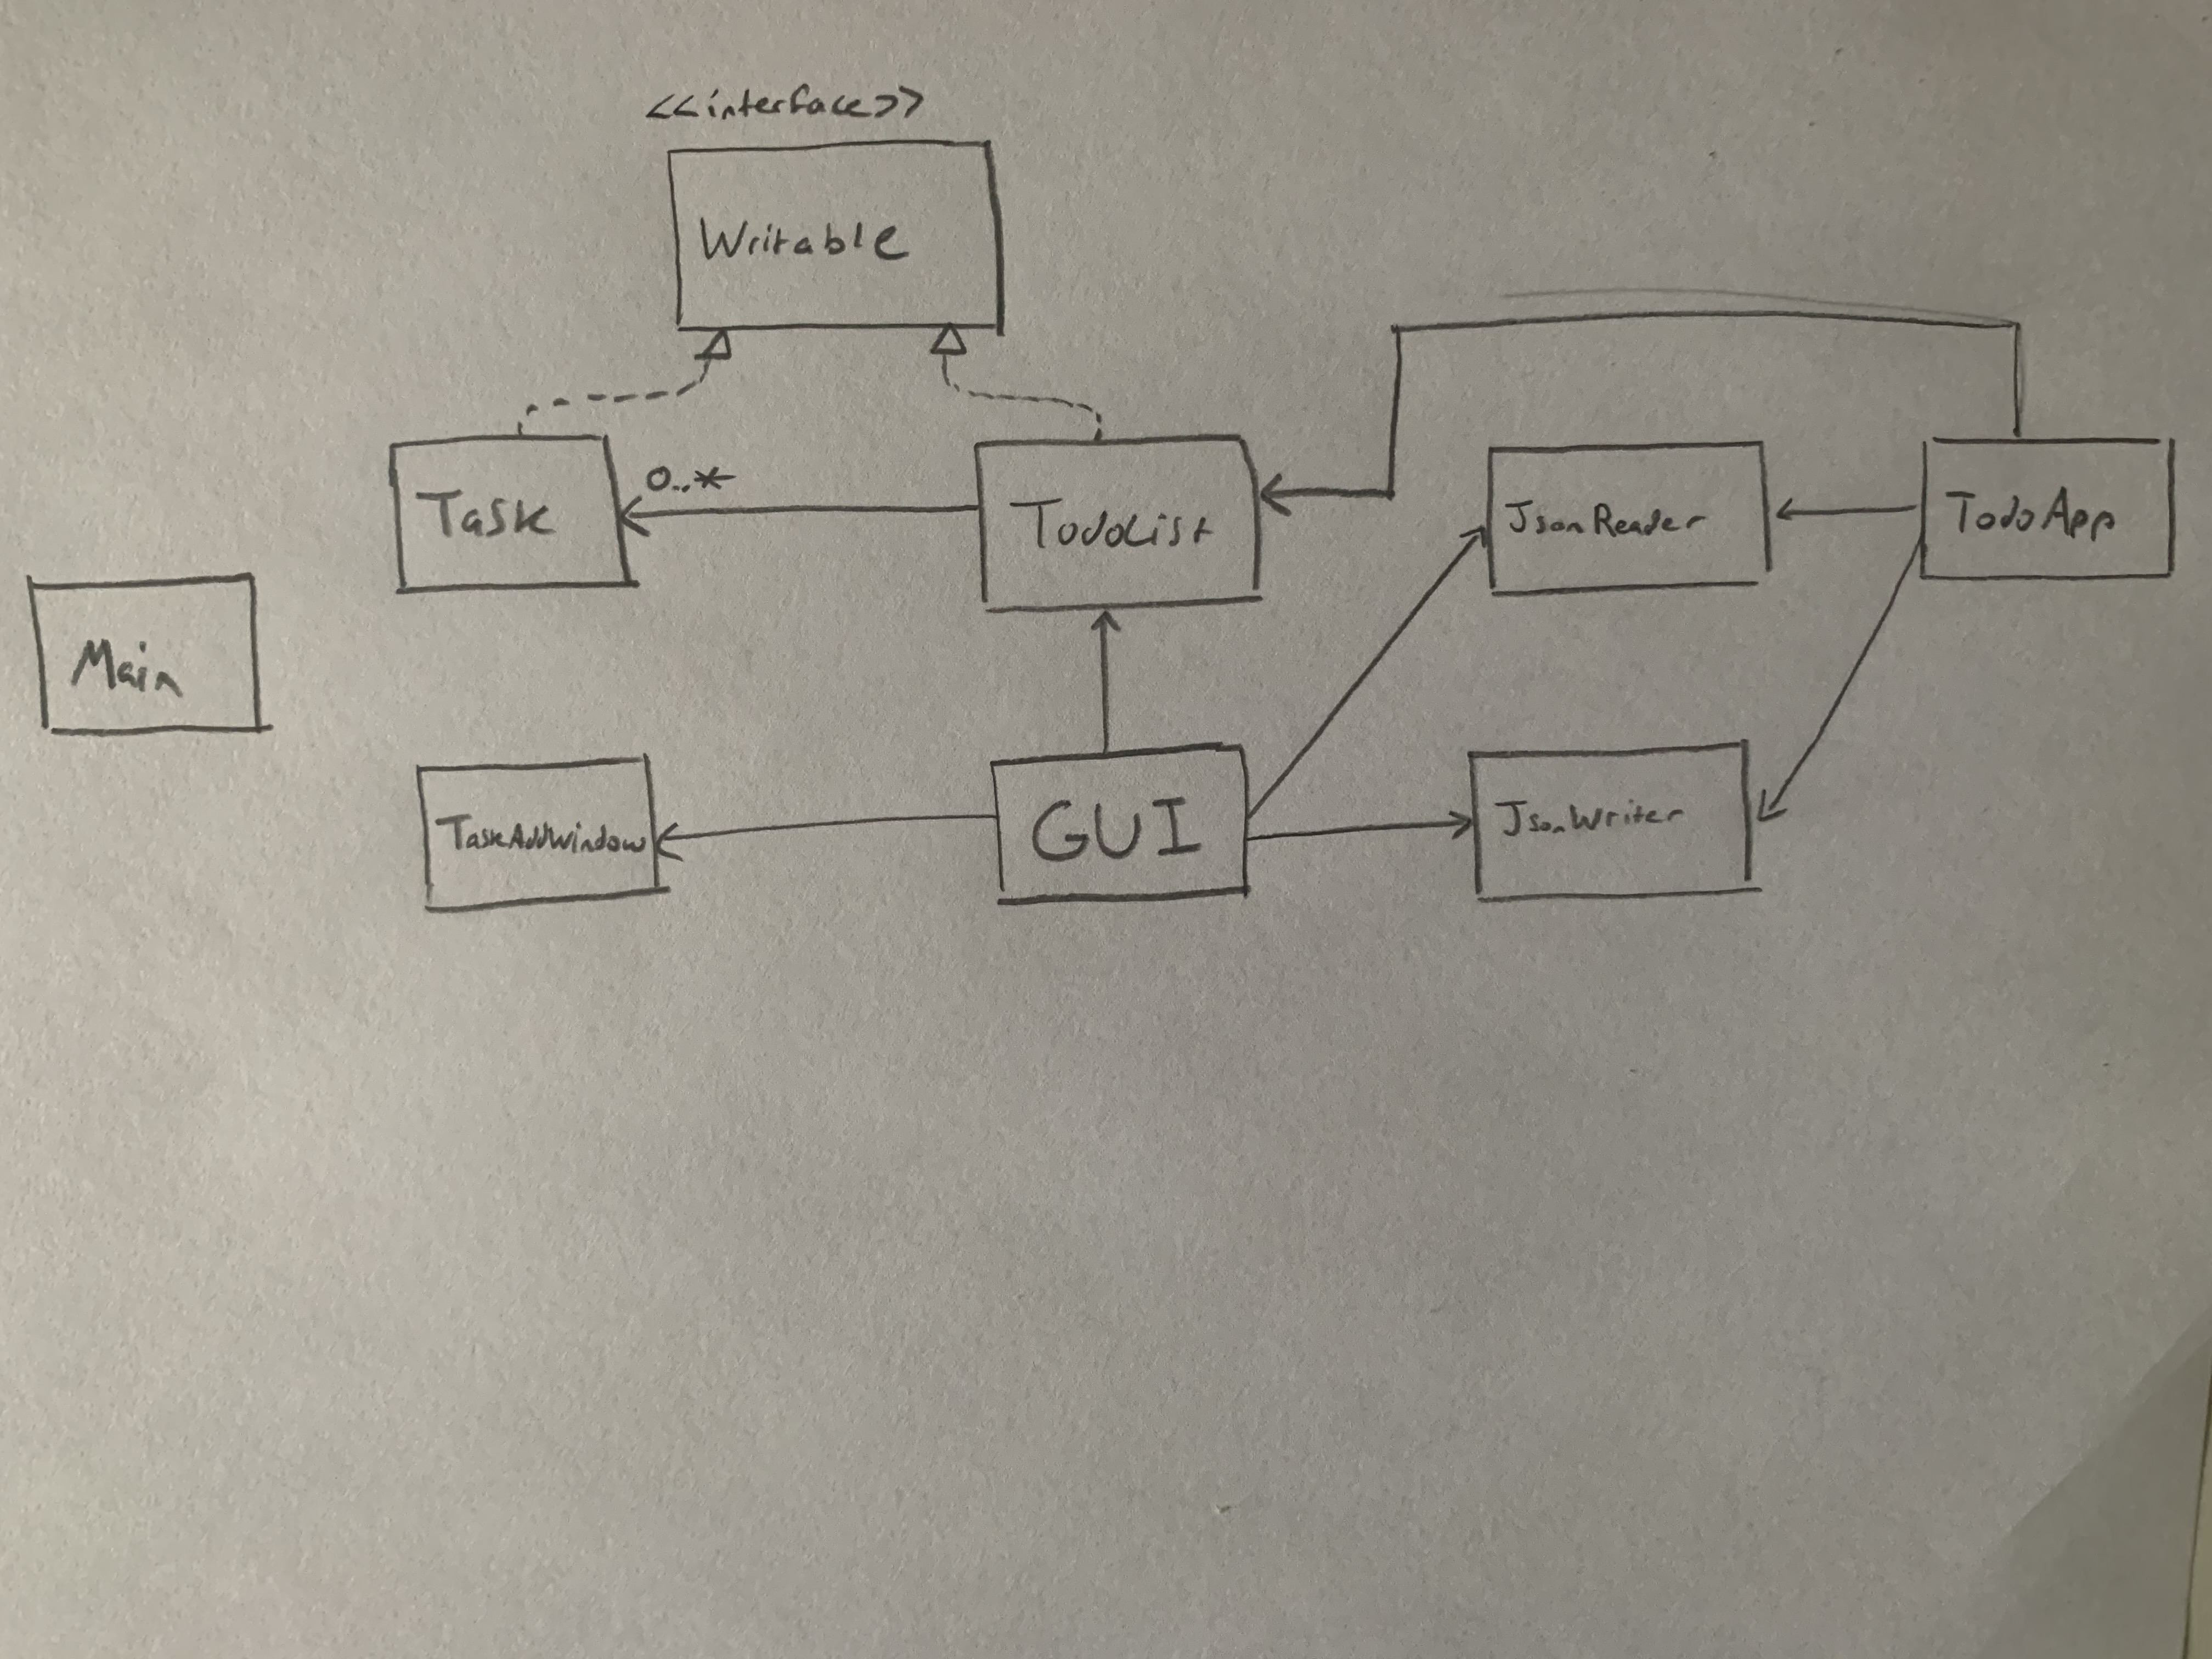 <<interface>>
Writable
0..*
Task
TodoList
JsonReader
TodoApp
Main
TaskAddWindow
GUI
JsonWriter